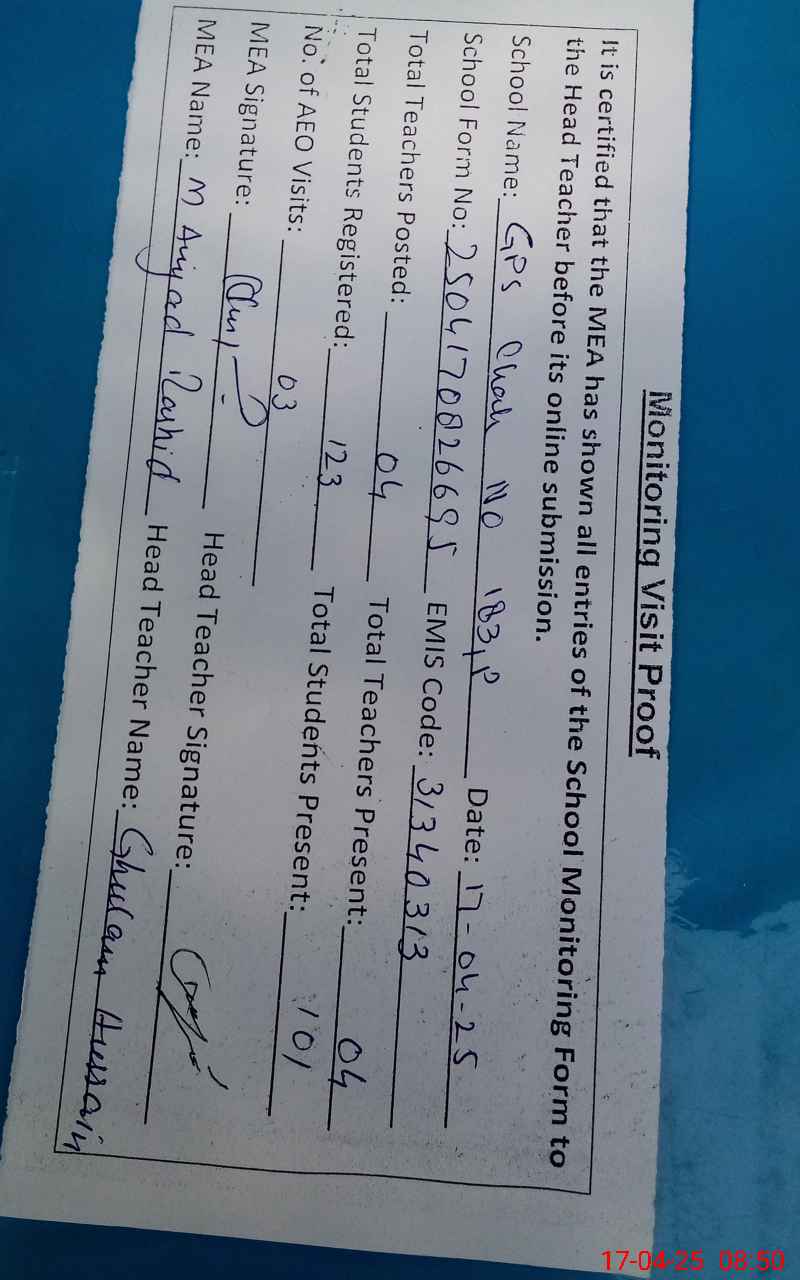 Monitoring Visit Proof
It is certified that the MEA has shown all entries of the School Monitoring Form to
the Head Teacher before its online submission.
School Name: GPS Chak No 183,P Date: 17-04-25
School Form No: 2504170826695 EMIS Code: 31340313
Total Teachers Posted: 04 Total Teachers Present: 04
Total Students Registered: 123 Total Students Present: 101
No. of AEO Visits: 03
MEA Signature: Head Teacher Signature:
MEA Name: M Amjad Rashid Head Teacher Name: Ghulam Hussain
17-04-25 08:50